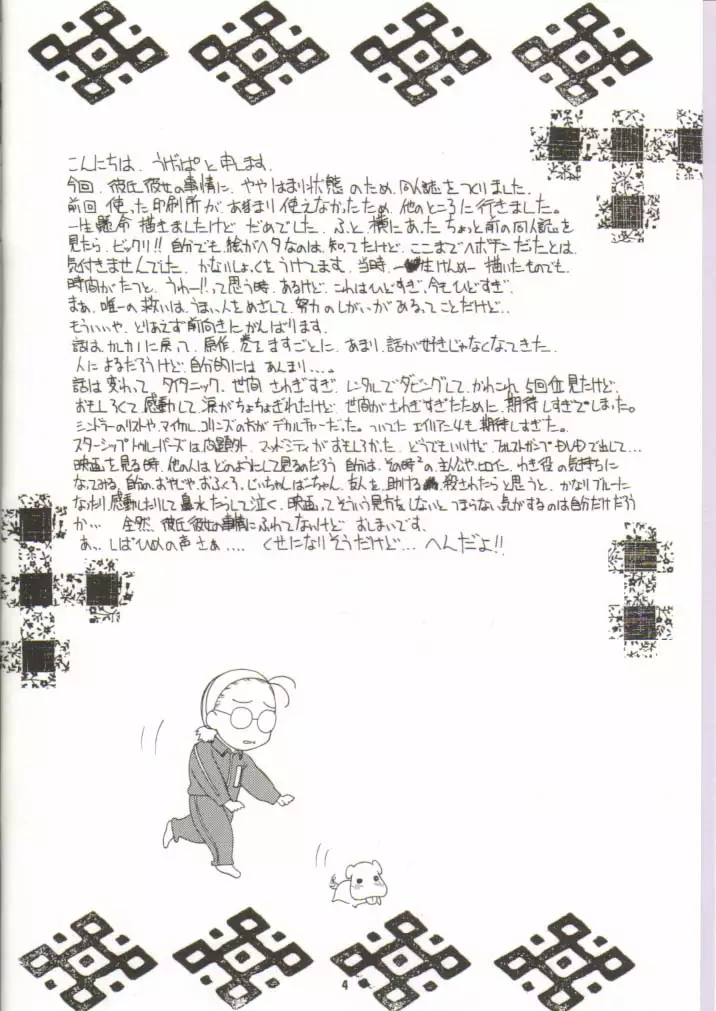 こんにちは、うげっぱと申します。
今回、彼氏彼女の事情に、ややはまり状態のため、同人誌をつくりました。
前回使った印刷所が、あまり使えなかったため、他のところに行きました。
一生懸命描きましたけど、だめでした。ふと、横にあった、ちょっと前の同人誌を
見たら、ビックリ!!自分でも、絵がヘタなのは、知ってたけど、ここまでヘボチンだったとは、
気付きませんでした。かなりしょっくをうけてます。当時、一生けんめー描いたものでも、
時間がたつと、うわー!!って思う時、あるけど、これはひどすぎ、今もひどすぎ、
まぁ、唯一の救いは、うまい人をめざして、努力のしがいがあるってことだけど..
もういいや、とりあえず前向きにがんばります。
話は、カレカノに戻って、原作、巻をますごとに、あまり、話が好きじゃなくなてきた。
人によるだろうけど、自分的にはあんまり....。
話は変わって、タイタニック、世間さわぎすぎ、レンタルでダビングして、かれこれ5回位見たけど、
おもしろくて感動して涙がちょちょぎれたけど、世間がさわぎすぎたために、期待しすぎてしまった。
シンドラーのリストや、マイケル・コリンズの方がデカルチャーだった。ついでにエイリアン4も期待しすぎた。
スターシップトゥルーパーズは問題外、マッドシティがおもしろかった。どうでもいいけど、フォレストガンプもDVDで出して...
映画を見る時、他の人はどのようにして見るのだろう 自分は、その時²の主人公や、ヒロイン、わき役の気持ちに
なってみる。自分のおやじや、おふくろ、じいちゃん、ばーちゃん、友人を、助ける 殺されたらと思うと、かなりブルーに
なったり、感動したりして鼻水たらして泣く、映画ってそういう見方をしないと、つまらない気がするのは自分だけだろう
か... 全然、彼氏彼女の事情にふれてないけど、おしまいです。
あっ、しばひめの声さぁ.... くせになりそうだけど... へんだよ!!
4